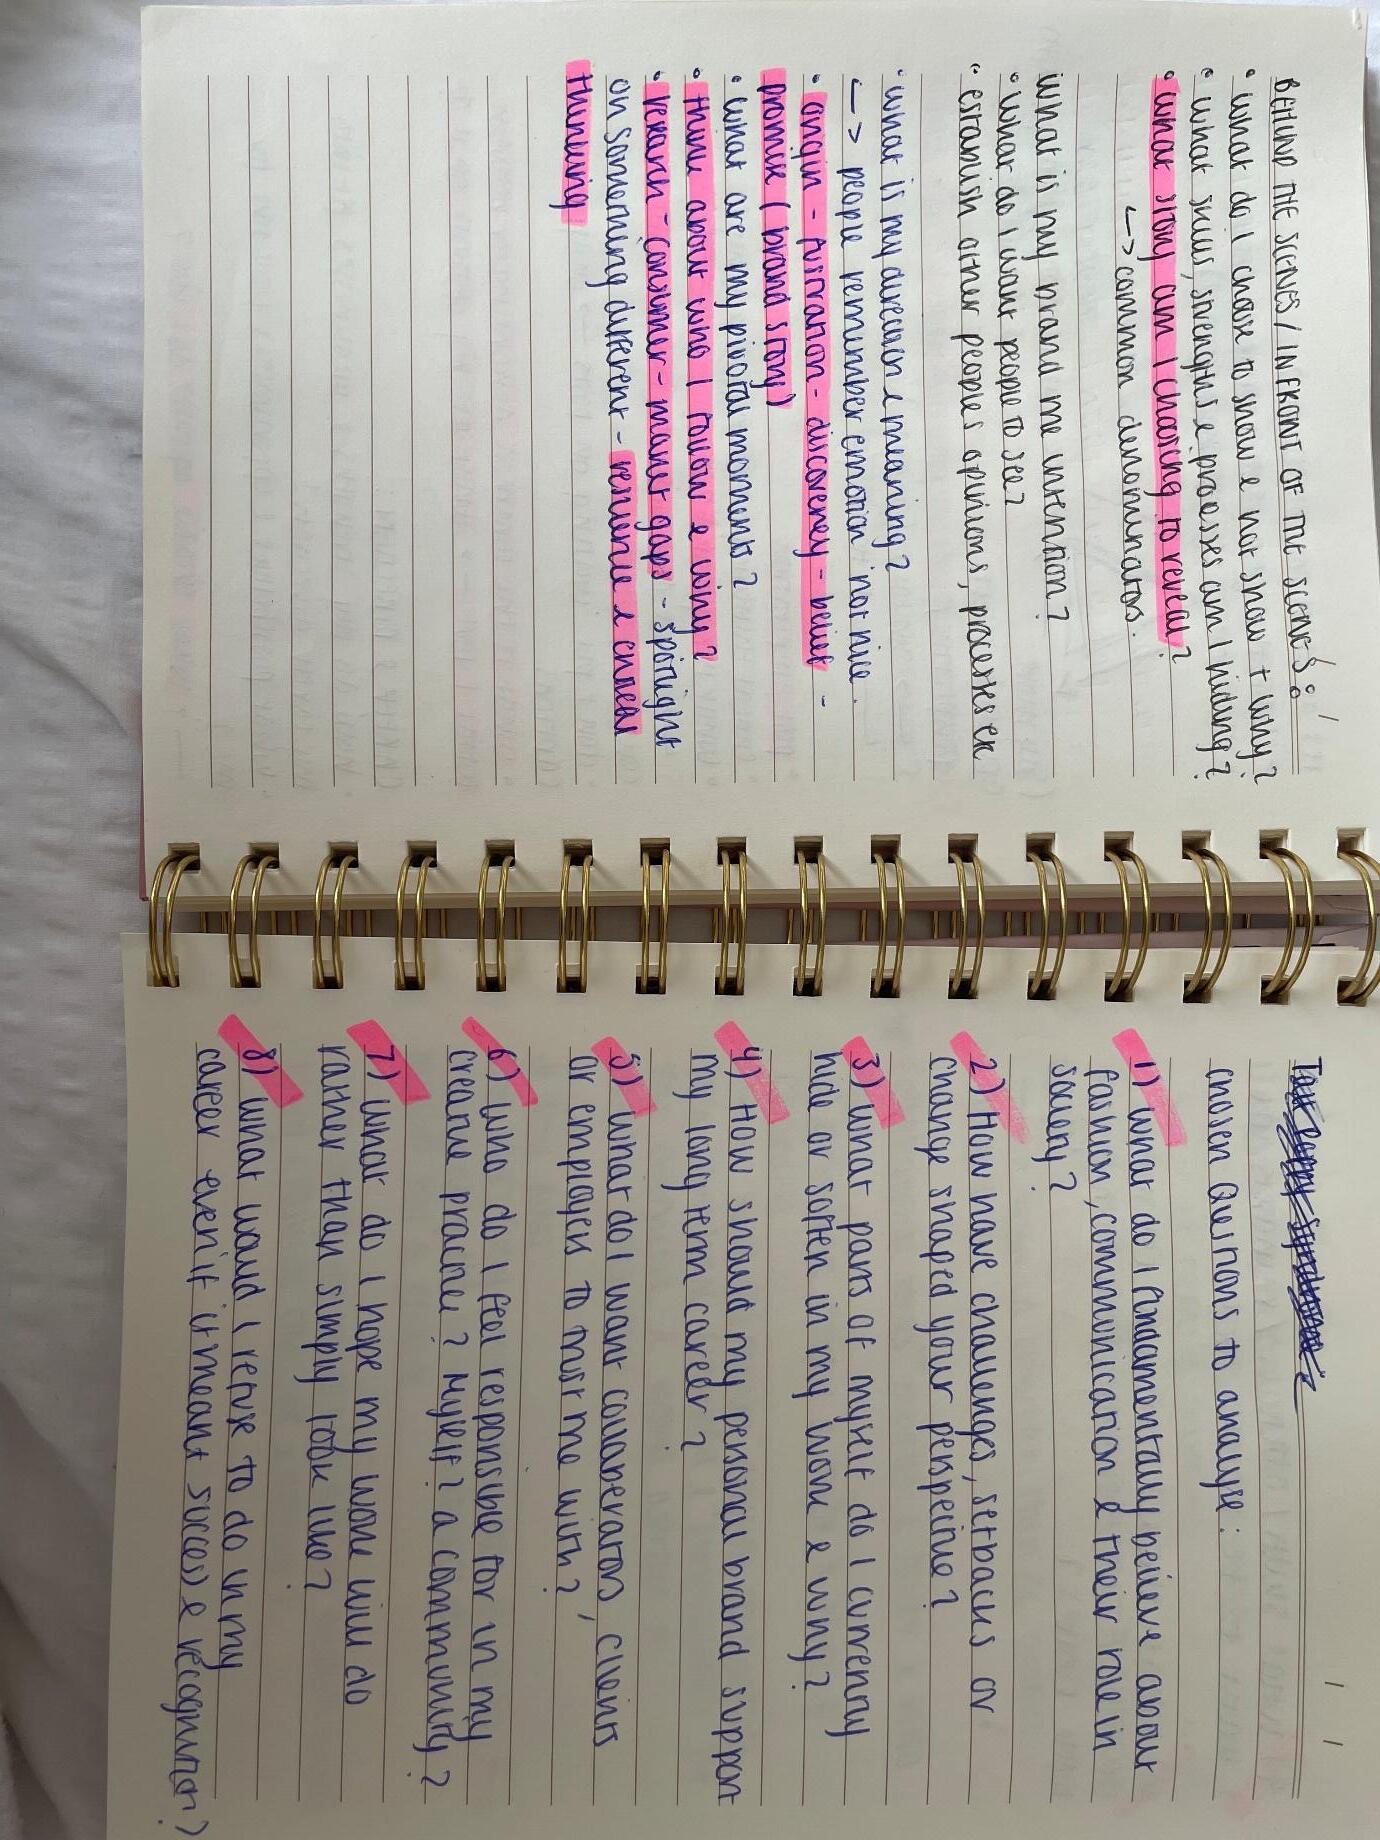 BEHIND THE SCENES / INFRONT OF THE SCENES:
• what do I choose to show & not show + why?
• what skills, strengths & processes am I hiding?
• what story am I choosing to reveal?
↳ common denominators.
what is my brand me intention?
• what do I want people to see?
• establish other peoples opinions, processes etc
• what is my direction & meaning?
↳ people remember emotion not nice.
• origin - fustration - discoverey - belief -
promise (brand story)
• what are my pivotal moments?
• think about who I follow & why?
• research - consumer - market gaps - spotlight
on something different - resilience & critical
thinking
chosen Questions to analyse:
1) What do I fundamentally believe about
fashion, communication & their role in
society?
2) How have challenges, setbacks or
change shaped your perspective?
3) What parts of myself do I currently
hide or soften in my work & why?
4) How should my personal brand support
my long term career?
5) What do I want collaberators, clients
or employers to trust me with?
6) Who do I feel responsible for in my
creative practice? Myself? a community?
7) What do I hope my work will do
rather than simply look like?
8) What would I refuse to do in my
career even if it meant success & recognition?